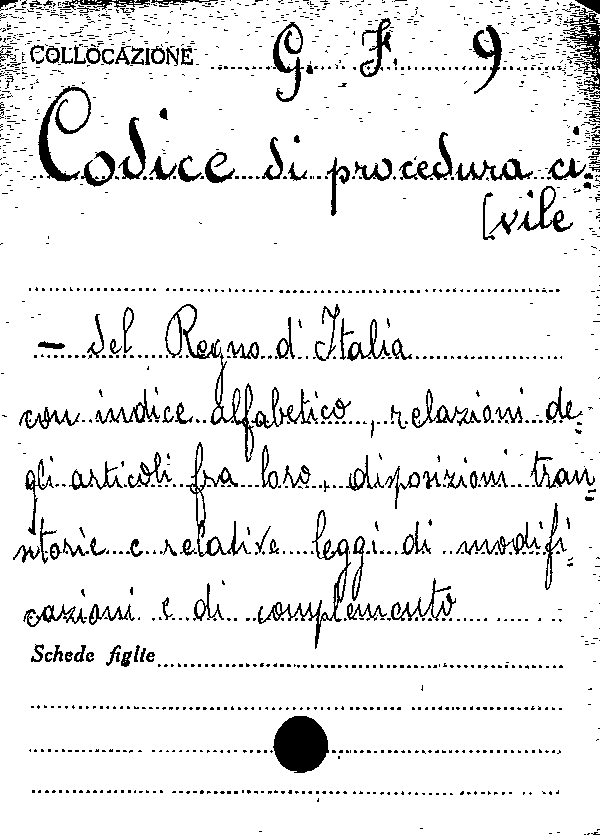 COLLOCAZIONE G. F. 9
Codice di procedura ci=
[vile
- del Regno d'Italia
con indice alfabetico, relazioni de=
gli articoli fra loro, disposizioni tran=
sitorie e relative leggi di modifi=
cazioni e di complemento
Schede figlie